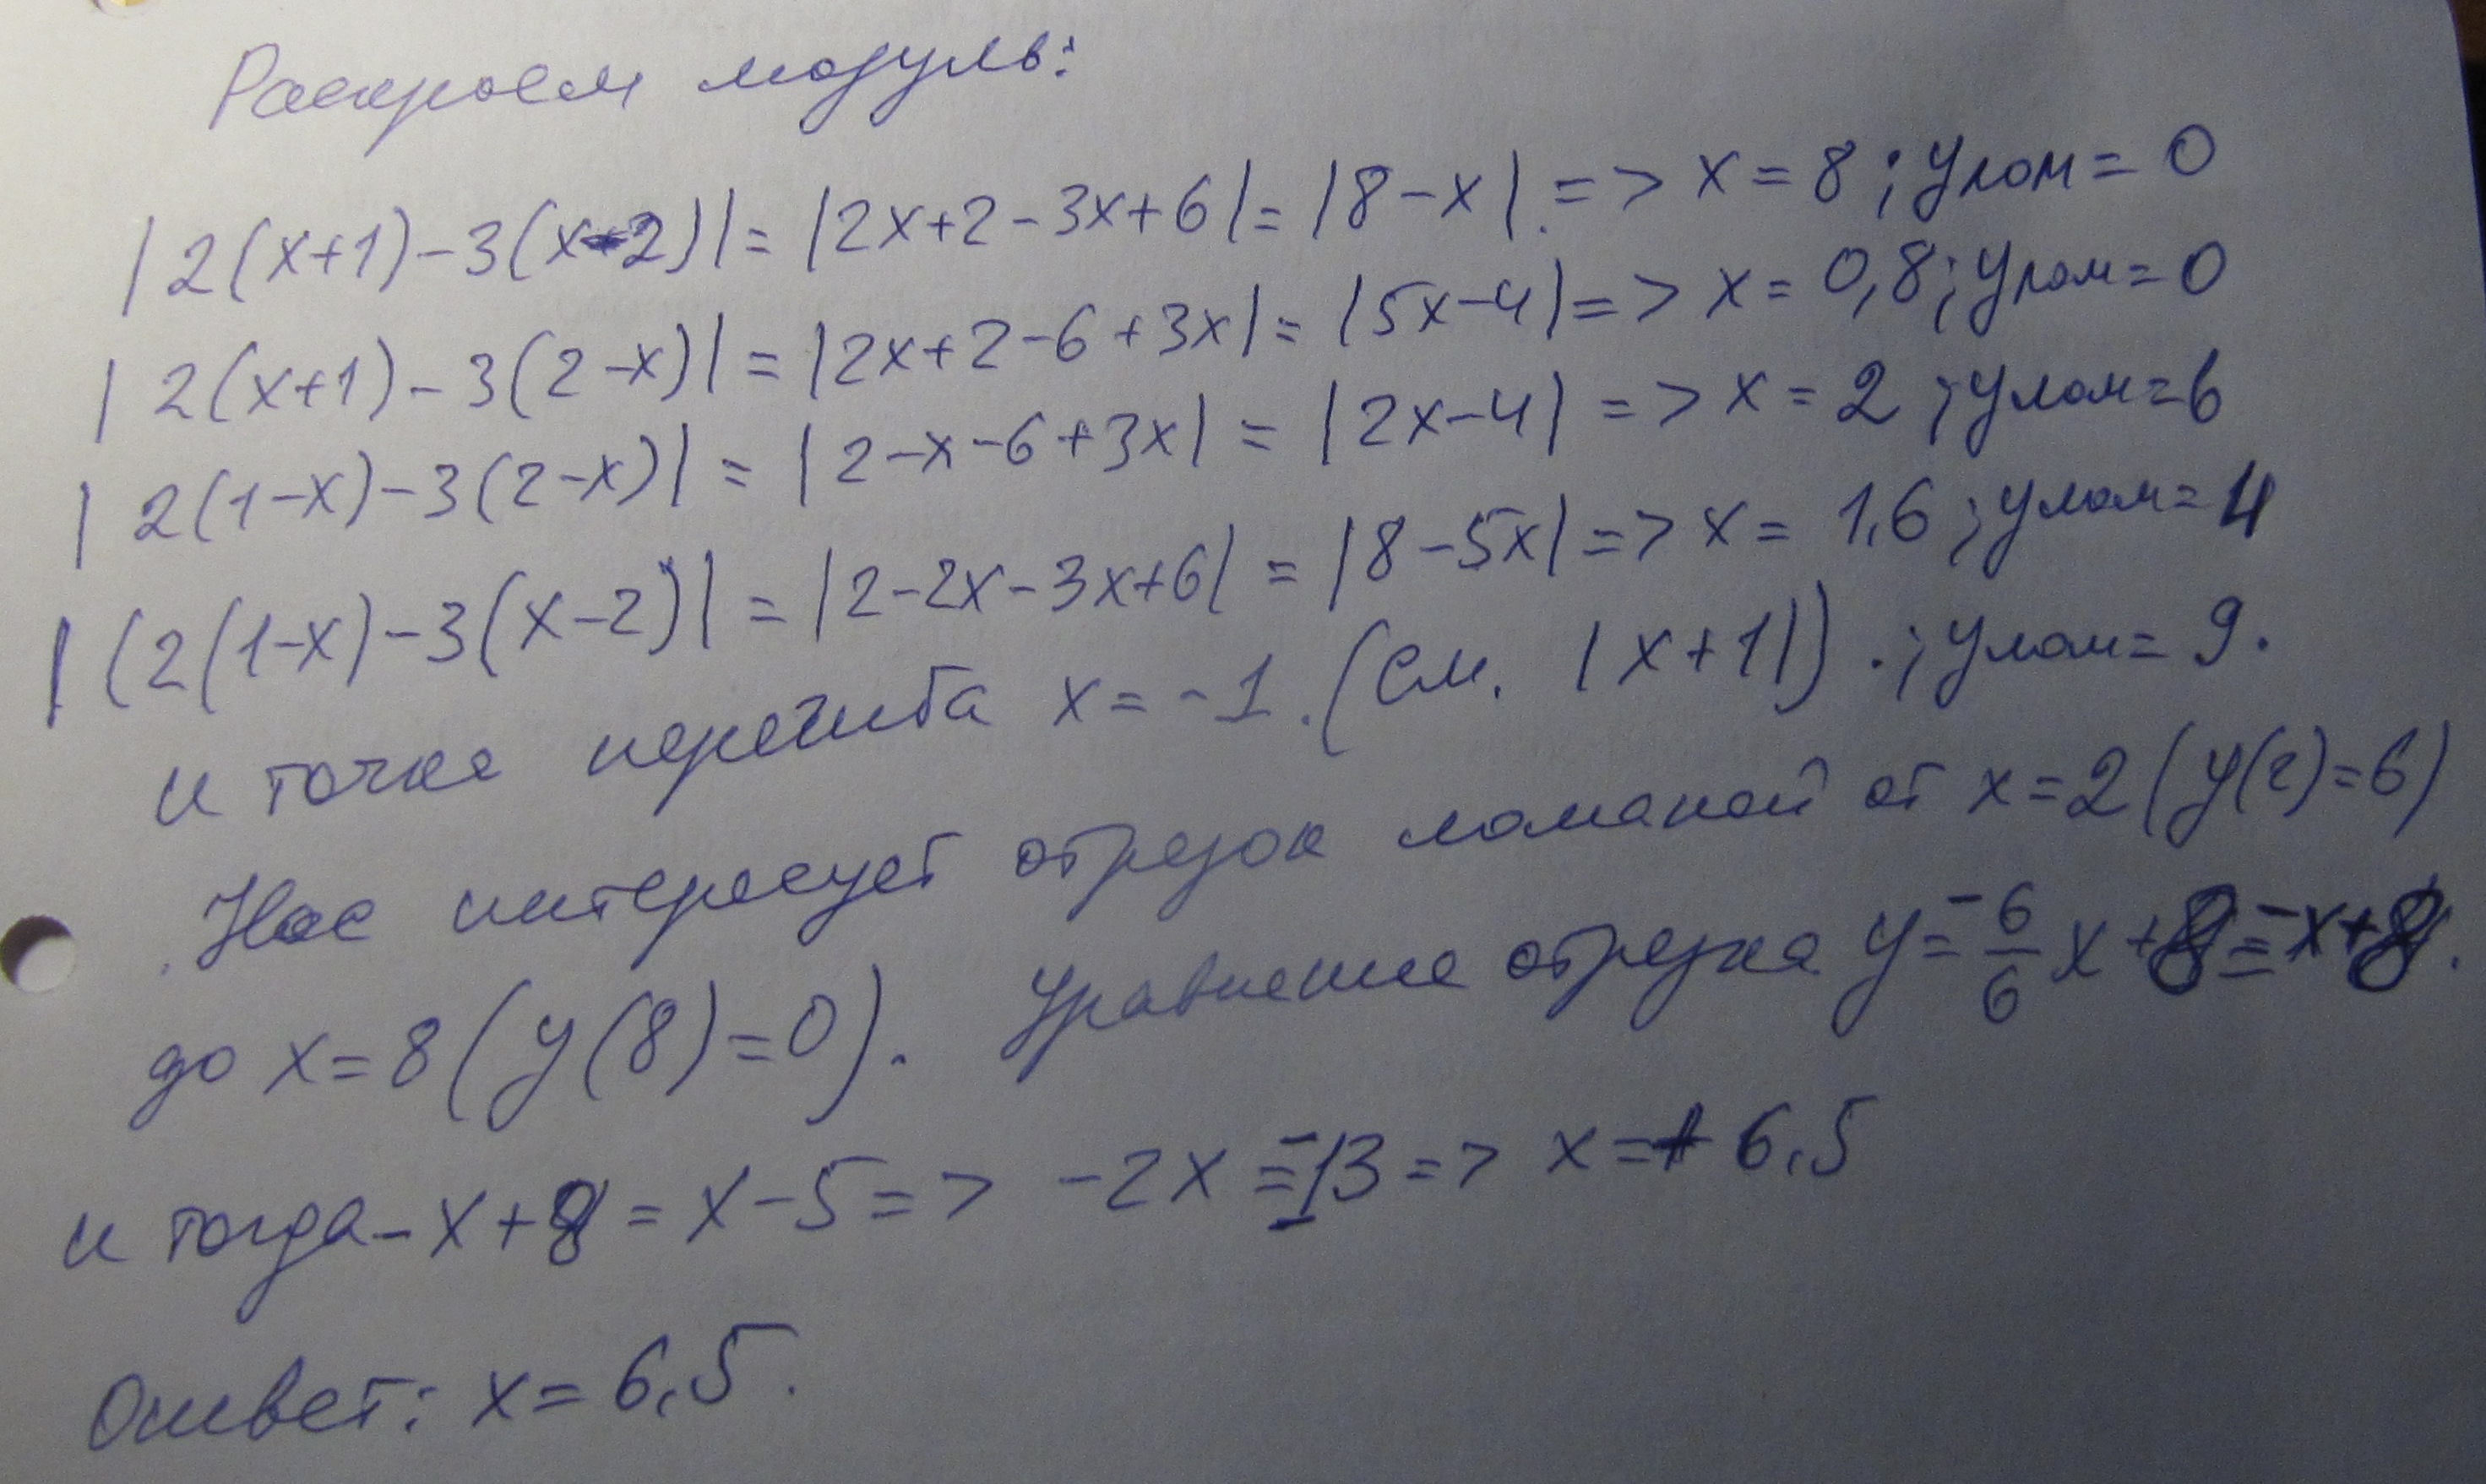 Раскроем модуль:
|2(x+1)-3(x-2)|=|2x+2-3x+6|=|8-x|.=>x=8;yлом=0
|2(x+1)-3(2-x)|=|2x+2-6+3x|=|5x-4|=>x=0,8;yлом=0
|2(1-x)-3(2-x)|=|2-x-6+3x|=|2x-4|=>x=2;yлом=6
|(2(1-x)-3(x-2)|=|2-2x-3x+6|=|8-5x|=>x=1,6;yлом=4
и точка перегиба x=-1.(см. |x+1|).;yлом=9.
Нас интересует отрезок ломаной от x=2(y(2)=6)
до x=8(y(8)=0). Уравнение отрезка y=-6/6x+8=-x+8.
и тогда-x+8=x-5=> -2x=-13=> x=+6,5
Ответ: x=6,5.